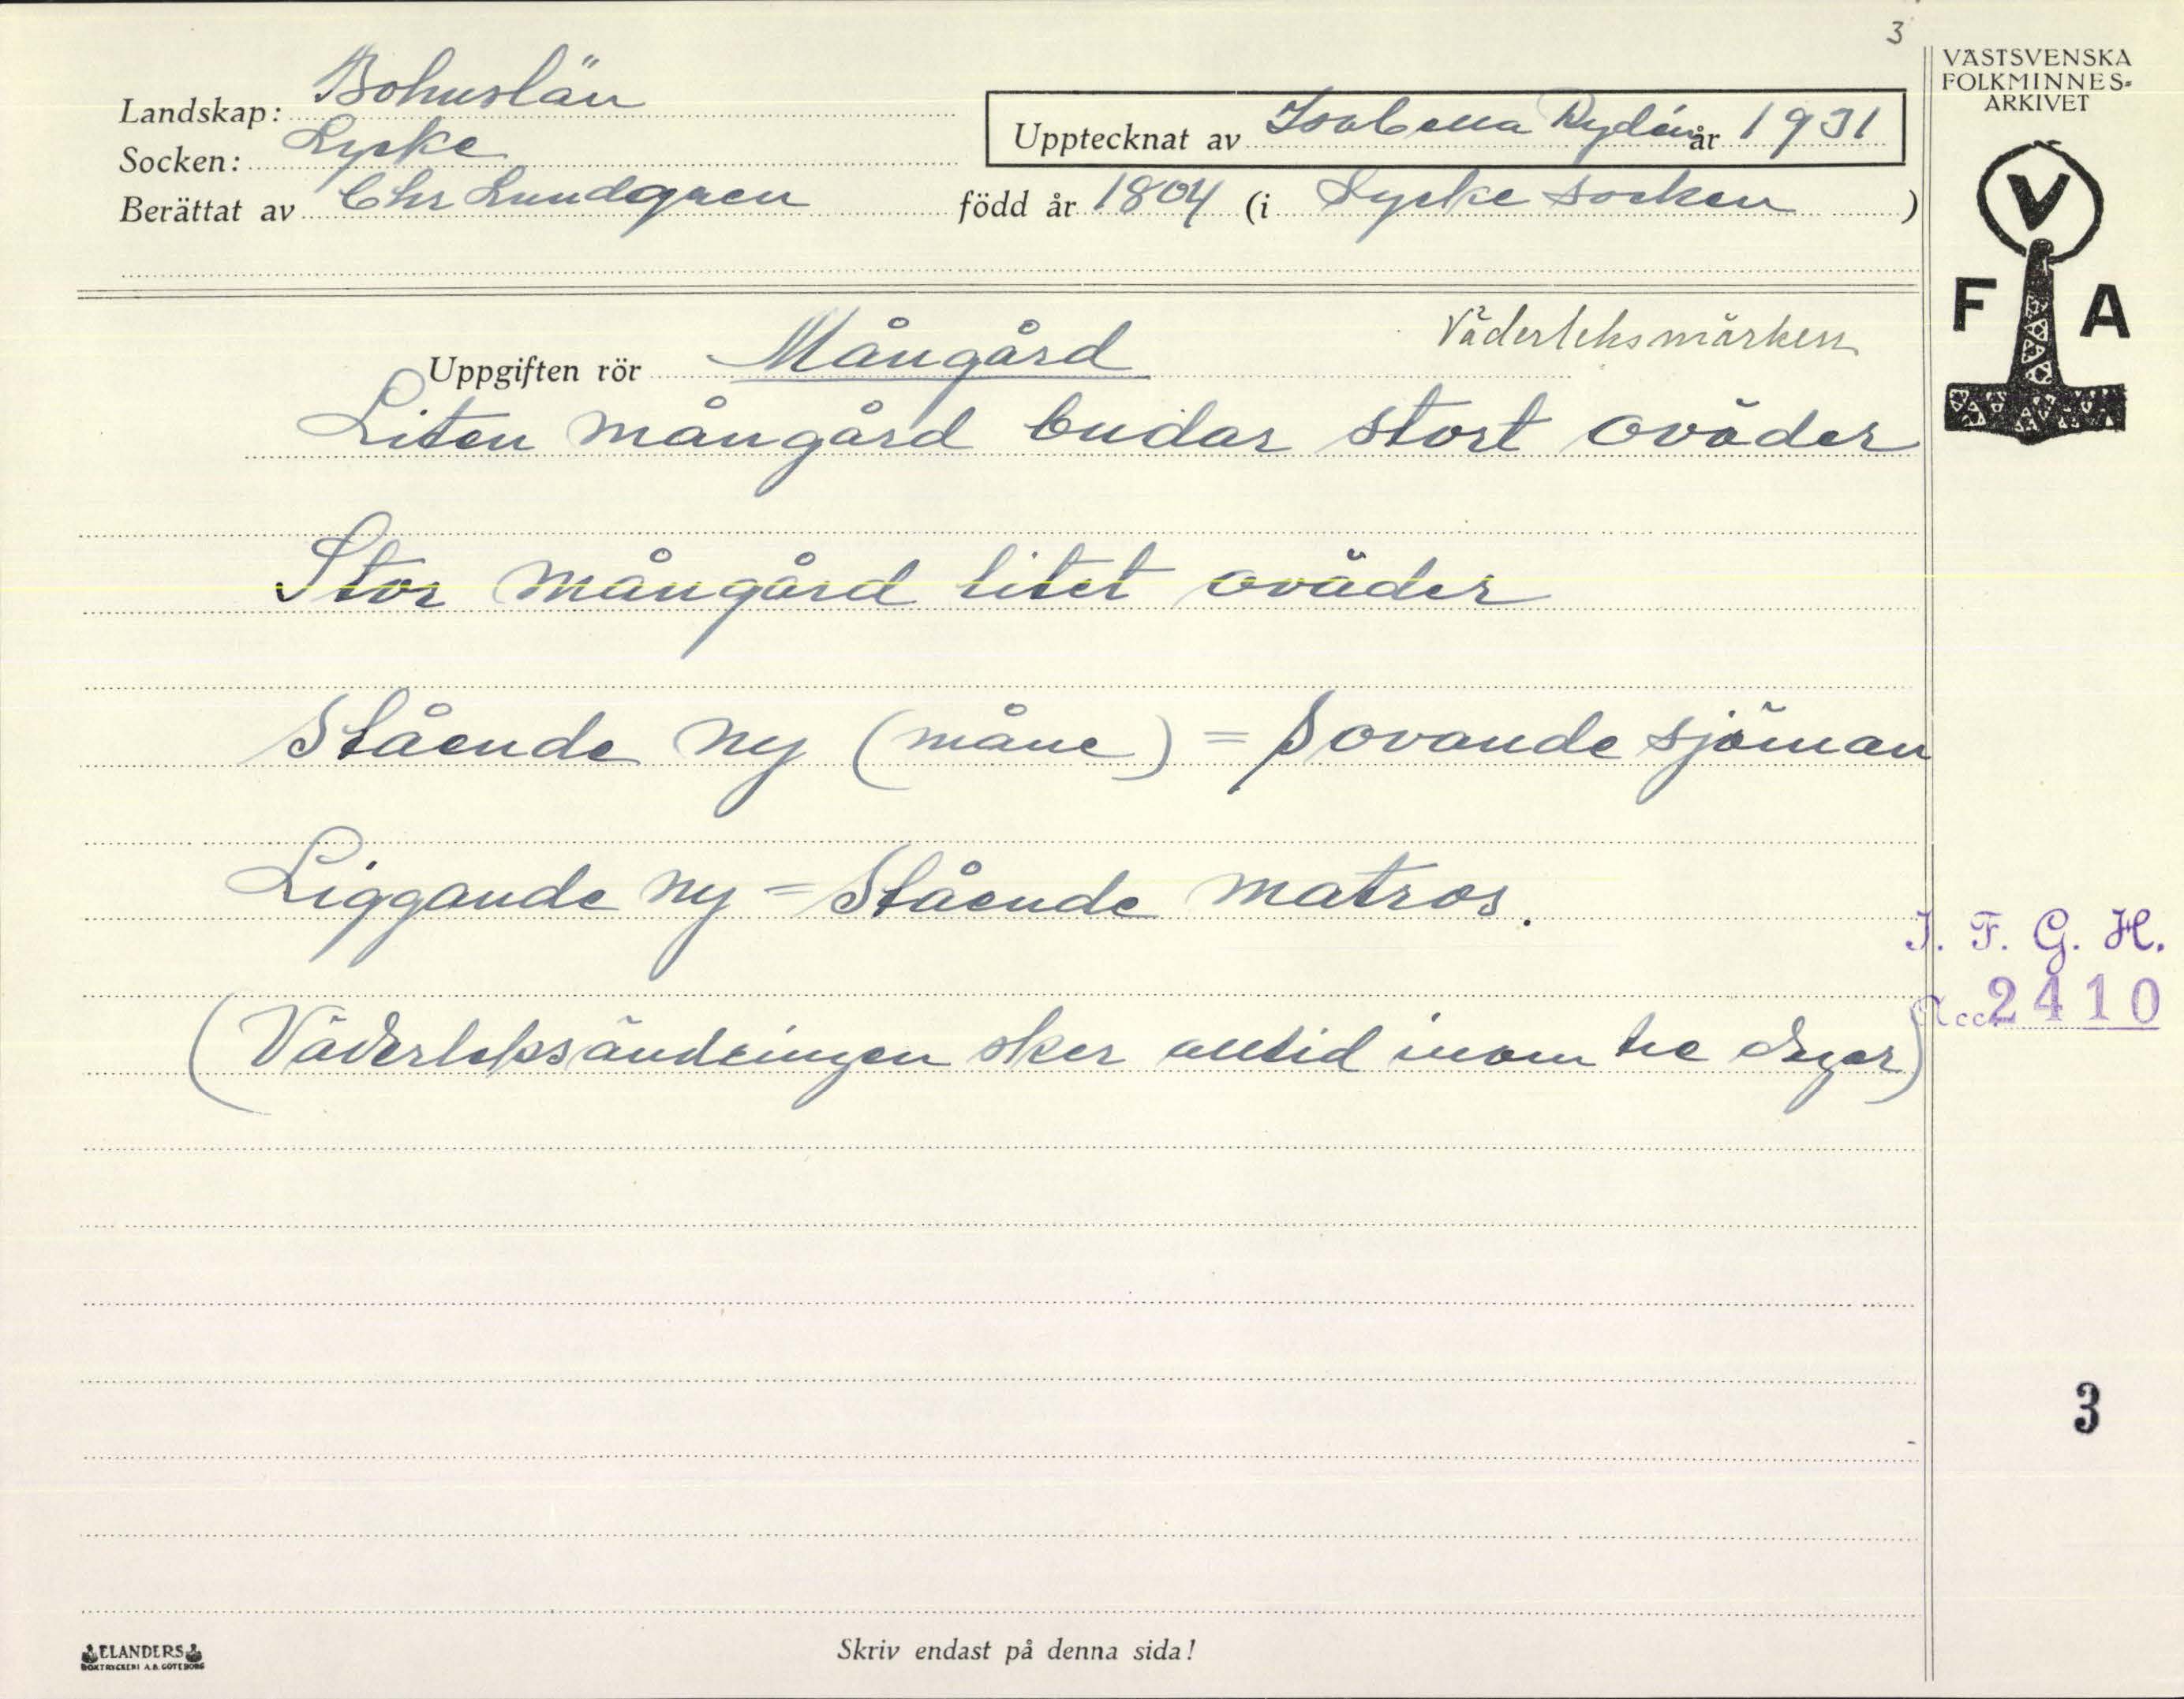 3
VÄSTSVENSKA
FOLKMINNES-
ARKIVET
V
F A
Landskap: Bohuslän
Socken: Lycke
Upptecknat av Isabella Rydén år 1931
Berättat av Chr Lundgren född år 1804 (i Lycke socken)
Uppgiften rör Mångård
Väderleksmärken
Liten mångård budar stort oväder
Stor mångård litet oväder
Stående ny (måne) = Sovande sjöman
Liggande ny = Stående matros.
(Väderleksändringen sker alltid inom tre dagar)
I. F. G. H.
Acc. 2410
3
ELANDERS
BOKTRYCKERI A.B. GÖTEBORG
Skriv endast på denna sida!